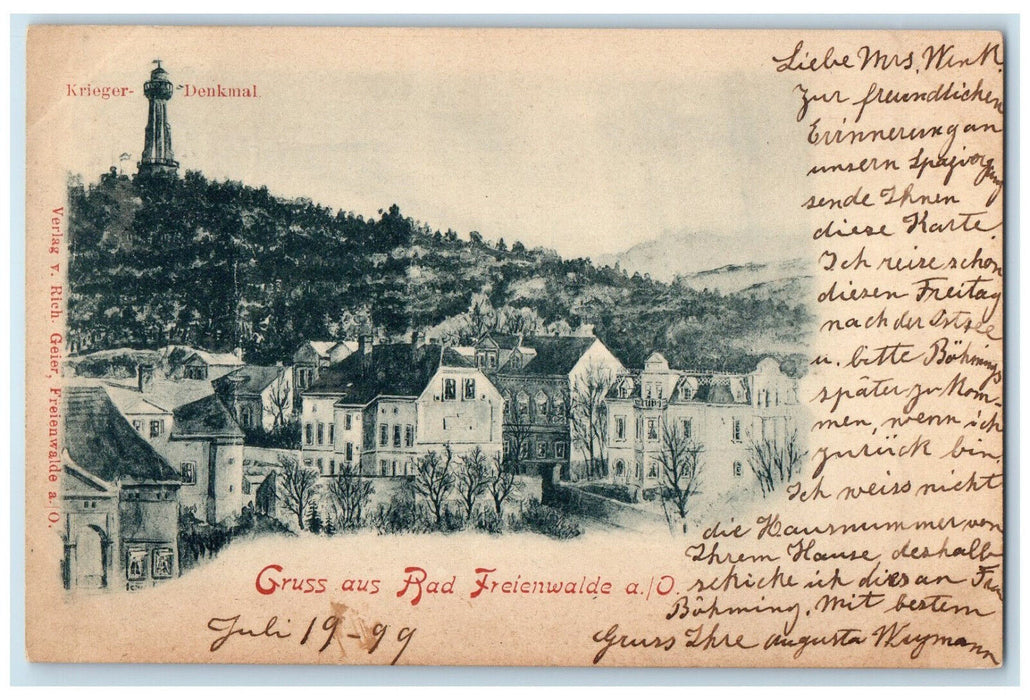 Krieger- Denkmal.
Verlag v. Rich. Geier, Freienwalde a./O.
Gruss aus Bad Freienwalde a./O.
Juli 19-99
Liebe Mrs. Wink.
Zur freundlichen
Erinnerung an
unsern
sende Ihnen
diese Karte
Ich reise schon
diesen Freitag
nach der Ostsee
u. bitte Böhmings
später zu kom-
men, wenn ich
zurück bin.
Ich weiss nicht
die Hausnummer von
Ihrem Hause deshalb
schicke ich dies an Frau
Böhming. Mit bestem
Gruss Ihre Augusta Weymann